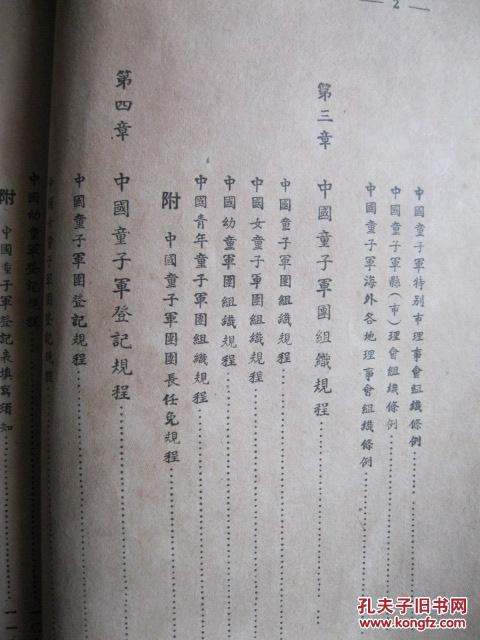 — 2 —
中國童子軍特别市理事會組織條例
中國童子軍縣(市)理會組織條例
中國童子軍海外各地理事會組織條例
第三章 中國童子軍團組織規程
中國童子軍團組織規程
中國女童子軍團組織規程
中國幼童軍團組織規程
中國青年童子軍團組織規程
附 中國童子軍團團長任免規程
第四章 中國童子軍登記規程
中國童子軍團登記規程
中國女童子軍團登記規程
中國幼童軍登記規程
附 中國童子軍登記表填寫須知
孔夫子旧书网
www.kongfz.com